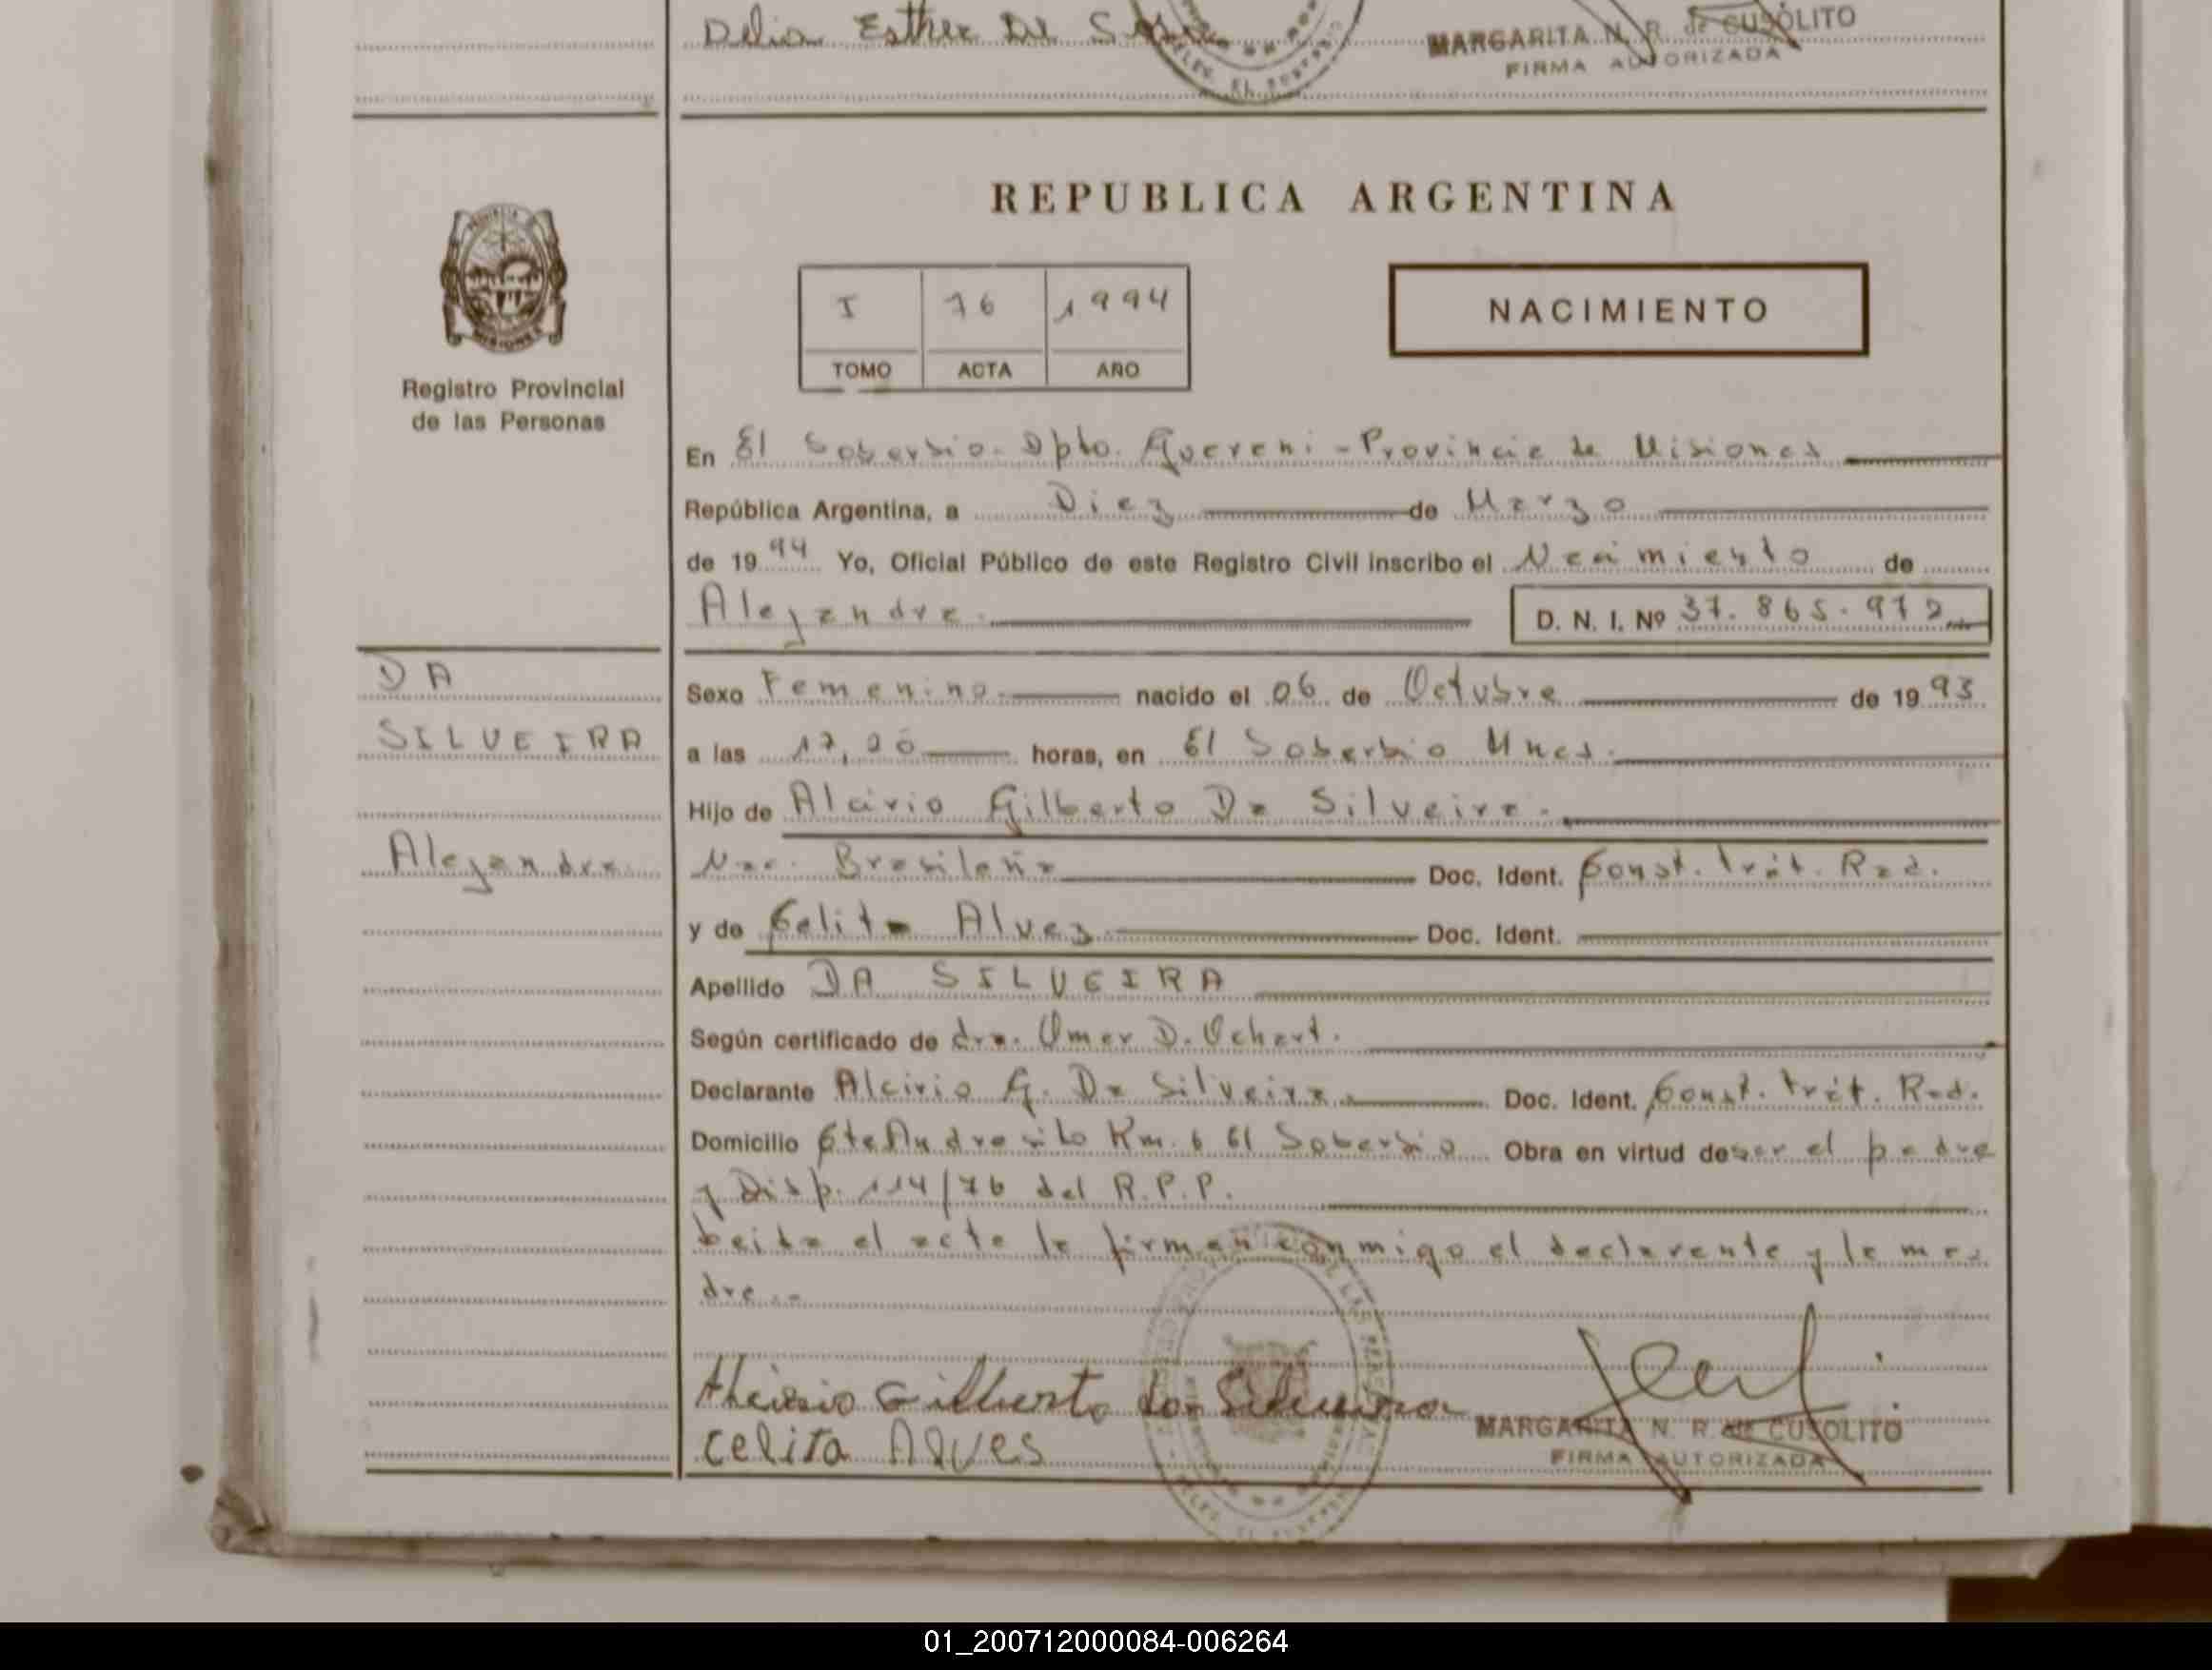 Delia Esther
MARGARITA N. R. de CUSOLITO
FIRMA AUTORIZADA
REPUBLICA ARGENTINA
I 76 1994
NACIMIENTO
TOMO ACTA AÑO
Registro Provincial
de las Personas
En El Soberbio. Dpto. Guarani - Provincia de Misiones
República Argentina, a Diez de Marzo
de 1994 Yo, Oficial Público de este Registro Civil inscribo el Nacimiento de
Alejandra. D. N. I. Nº 37.865.972
DA
Sexo Femenino. nacido el 06 de Octubre de 1993
SILVEIRA
a las horas, en El Soberbio Mnes.
Hijo de Alcirio Gilberto Da Silveira.
Alejandra.
Nac. Brasileña Doc. Ident. Const. trát. Rad.
y de Celita Alvez Doc. Ident.
Apellido DA SILVEIRA
Según certificado de dra. Omar D. Ochart.
Declarante Alcirio G. Da Silveira. Doc. Ident. Const. trát. Rad.
Domicilio Cte Andresito Km. 6 El Soberbio Obra en virtud de ser el padre
y Disp. 114/76 del R.P.P.
Leida el acta la firman conmigo el declarante y la ma-
dre.-
Alcirio Gilberto da Silveira
MARGARITA N. R. de CUSOLITO
celita Alves
FIRMA AUTORIZADA
01_200712000084-006264